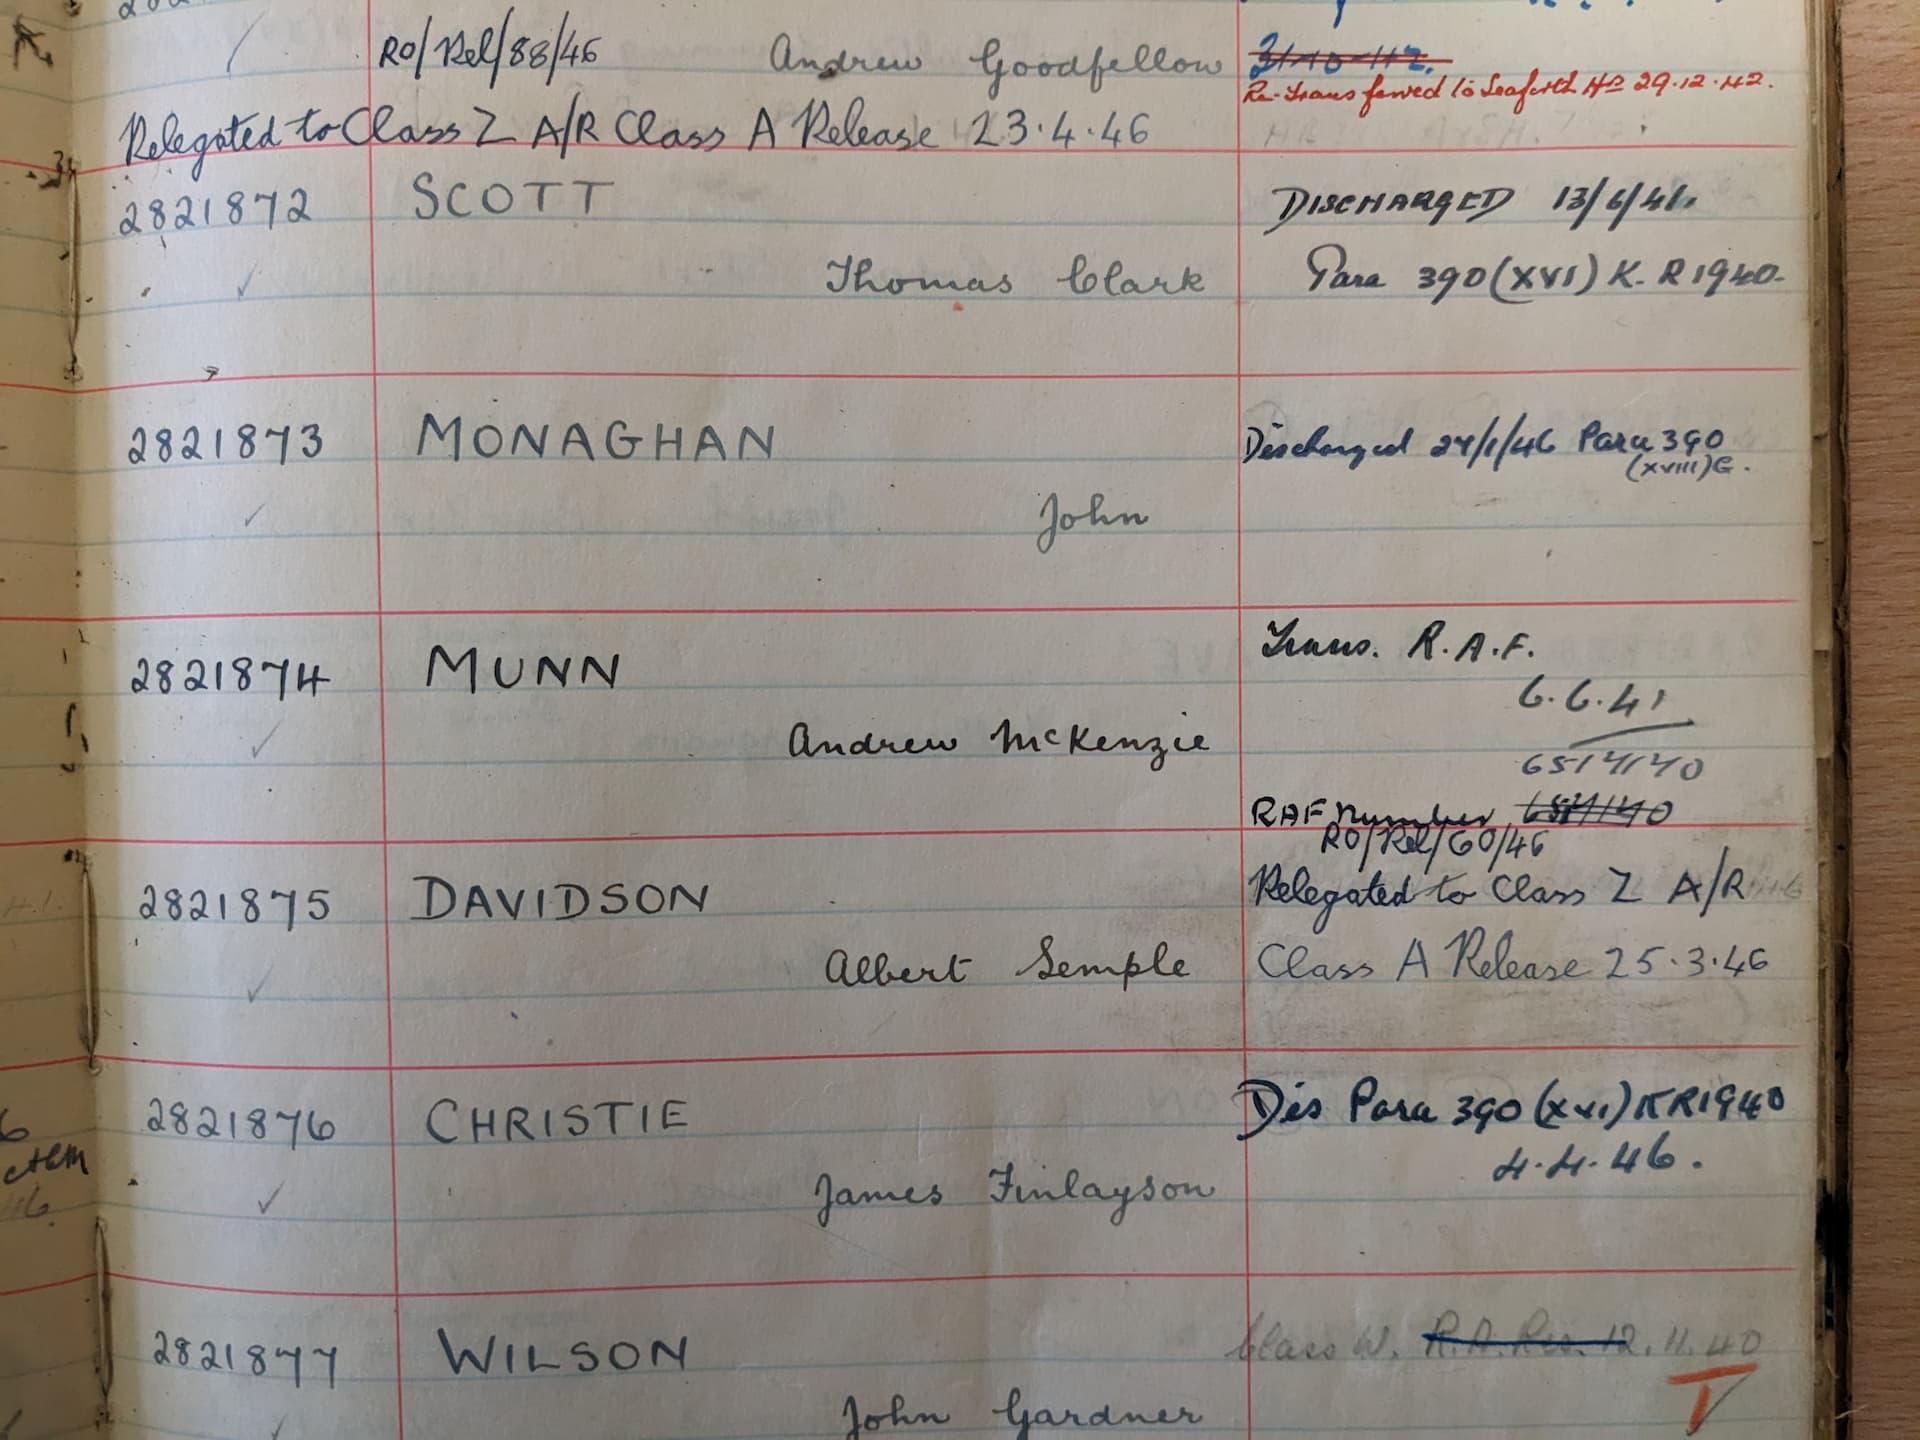 RO/Rel/88/46 Andrew Goodfellow 31-10-42.
Re-Transferred to Seaforth Hrs 29.12.42.
Relegated to Class Z A/R Class A Release 23.4.46
2821872 SCOTT DISCHARGED 13/6/41.
Thomas Clark Para 390 (XVI) K.R 1940.
2821873 MONAGHAN Discharged 24/1/46 Para 390
(XVIII)G.
John
2821874 MUNN Trans. R.A.F.
6.6.41
Andrew McKenzie
RAF Number
RO/Rel/60/46
2821875 DAVIDSON Relegated to Class Z A/R
Albert Semple Class A Release 25.3.46
2821876 CHRISTIE Dis Para 390 (xvi) KR1940
4.4.46.
James Finlayson
2821877 WILSON Class W. R.A.Res. 12.11.40
T
John Gardner